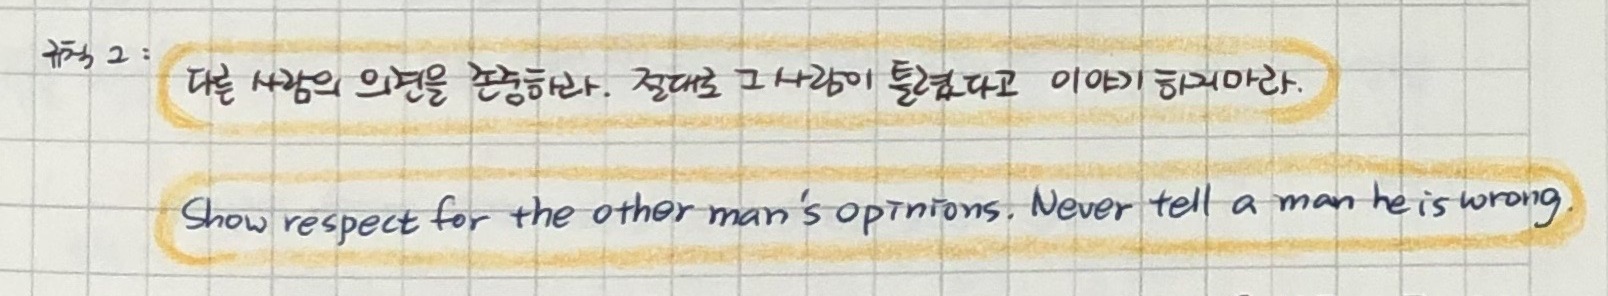 규칙 2:
다른 사람의 의견을 존중하라. 절대로 그 사람이 틀렸다고 이야기 하지마라.
Show respect for the other man's opinions. Never tell a man he is wrong.